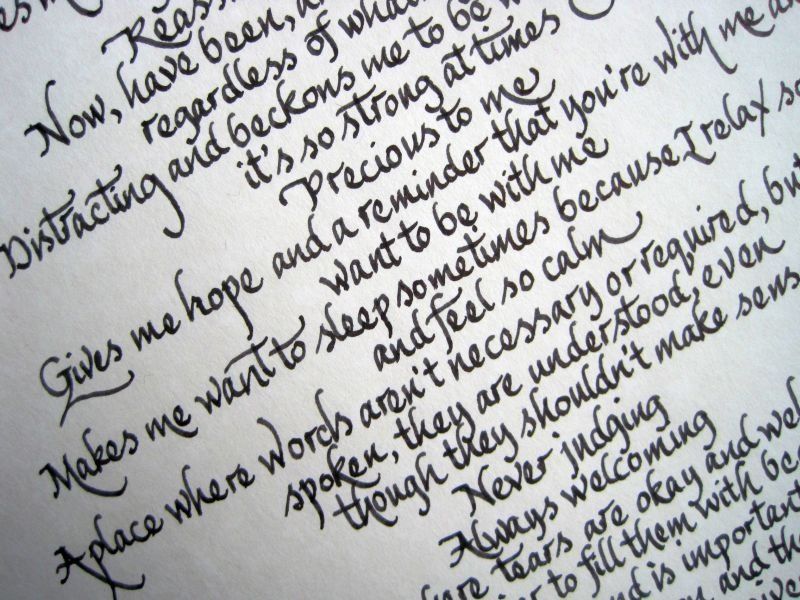 Now, have been, a
regardless of what
Distracting and beckons me to be
it's so strong at times
Precious to me
Gives me hope and a reminder that you're with me a
want to be with me
Makes me want to sleep sometimes because I relax so
and feel so calm
A place where words aren't necessary or required, but
spoken, they are understood, even
though they shouldn't make sens
Never judging
Always welcoming
tears are okay and wel
to fill them with be
nd is important
and th